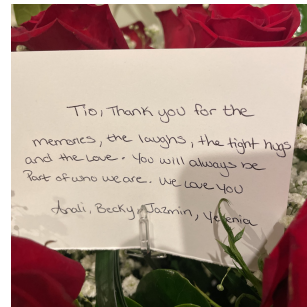 Tio, Thank you for the
memories, the laughs, the tight hugs
and the Love. You will always be
Part of who we are. We Love You
Anali, Becky, Jazmin, Yesenia